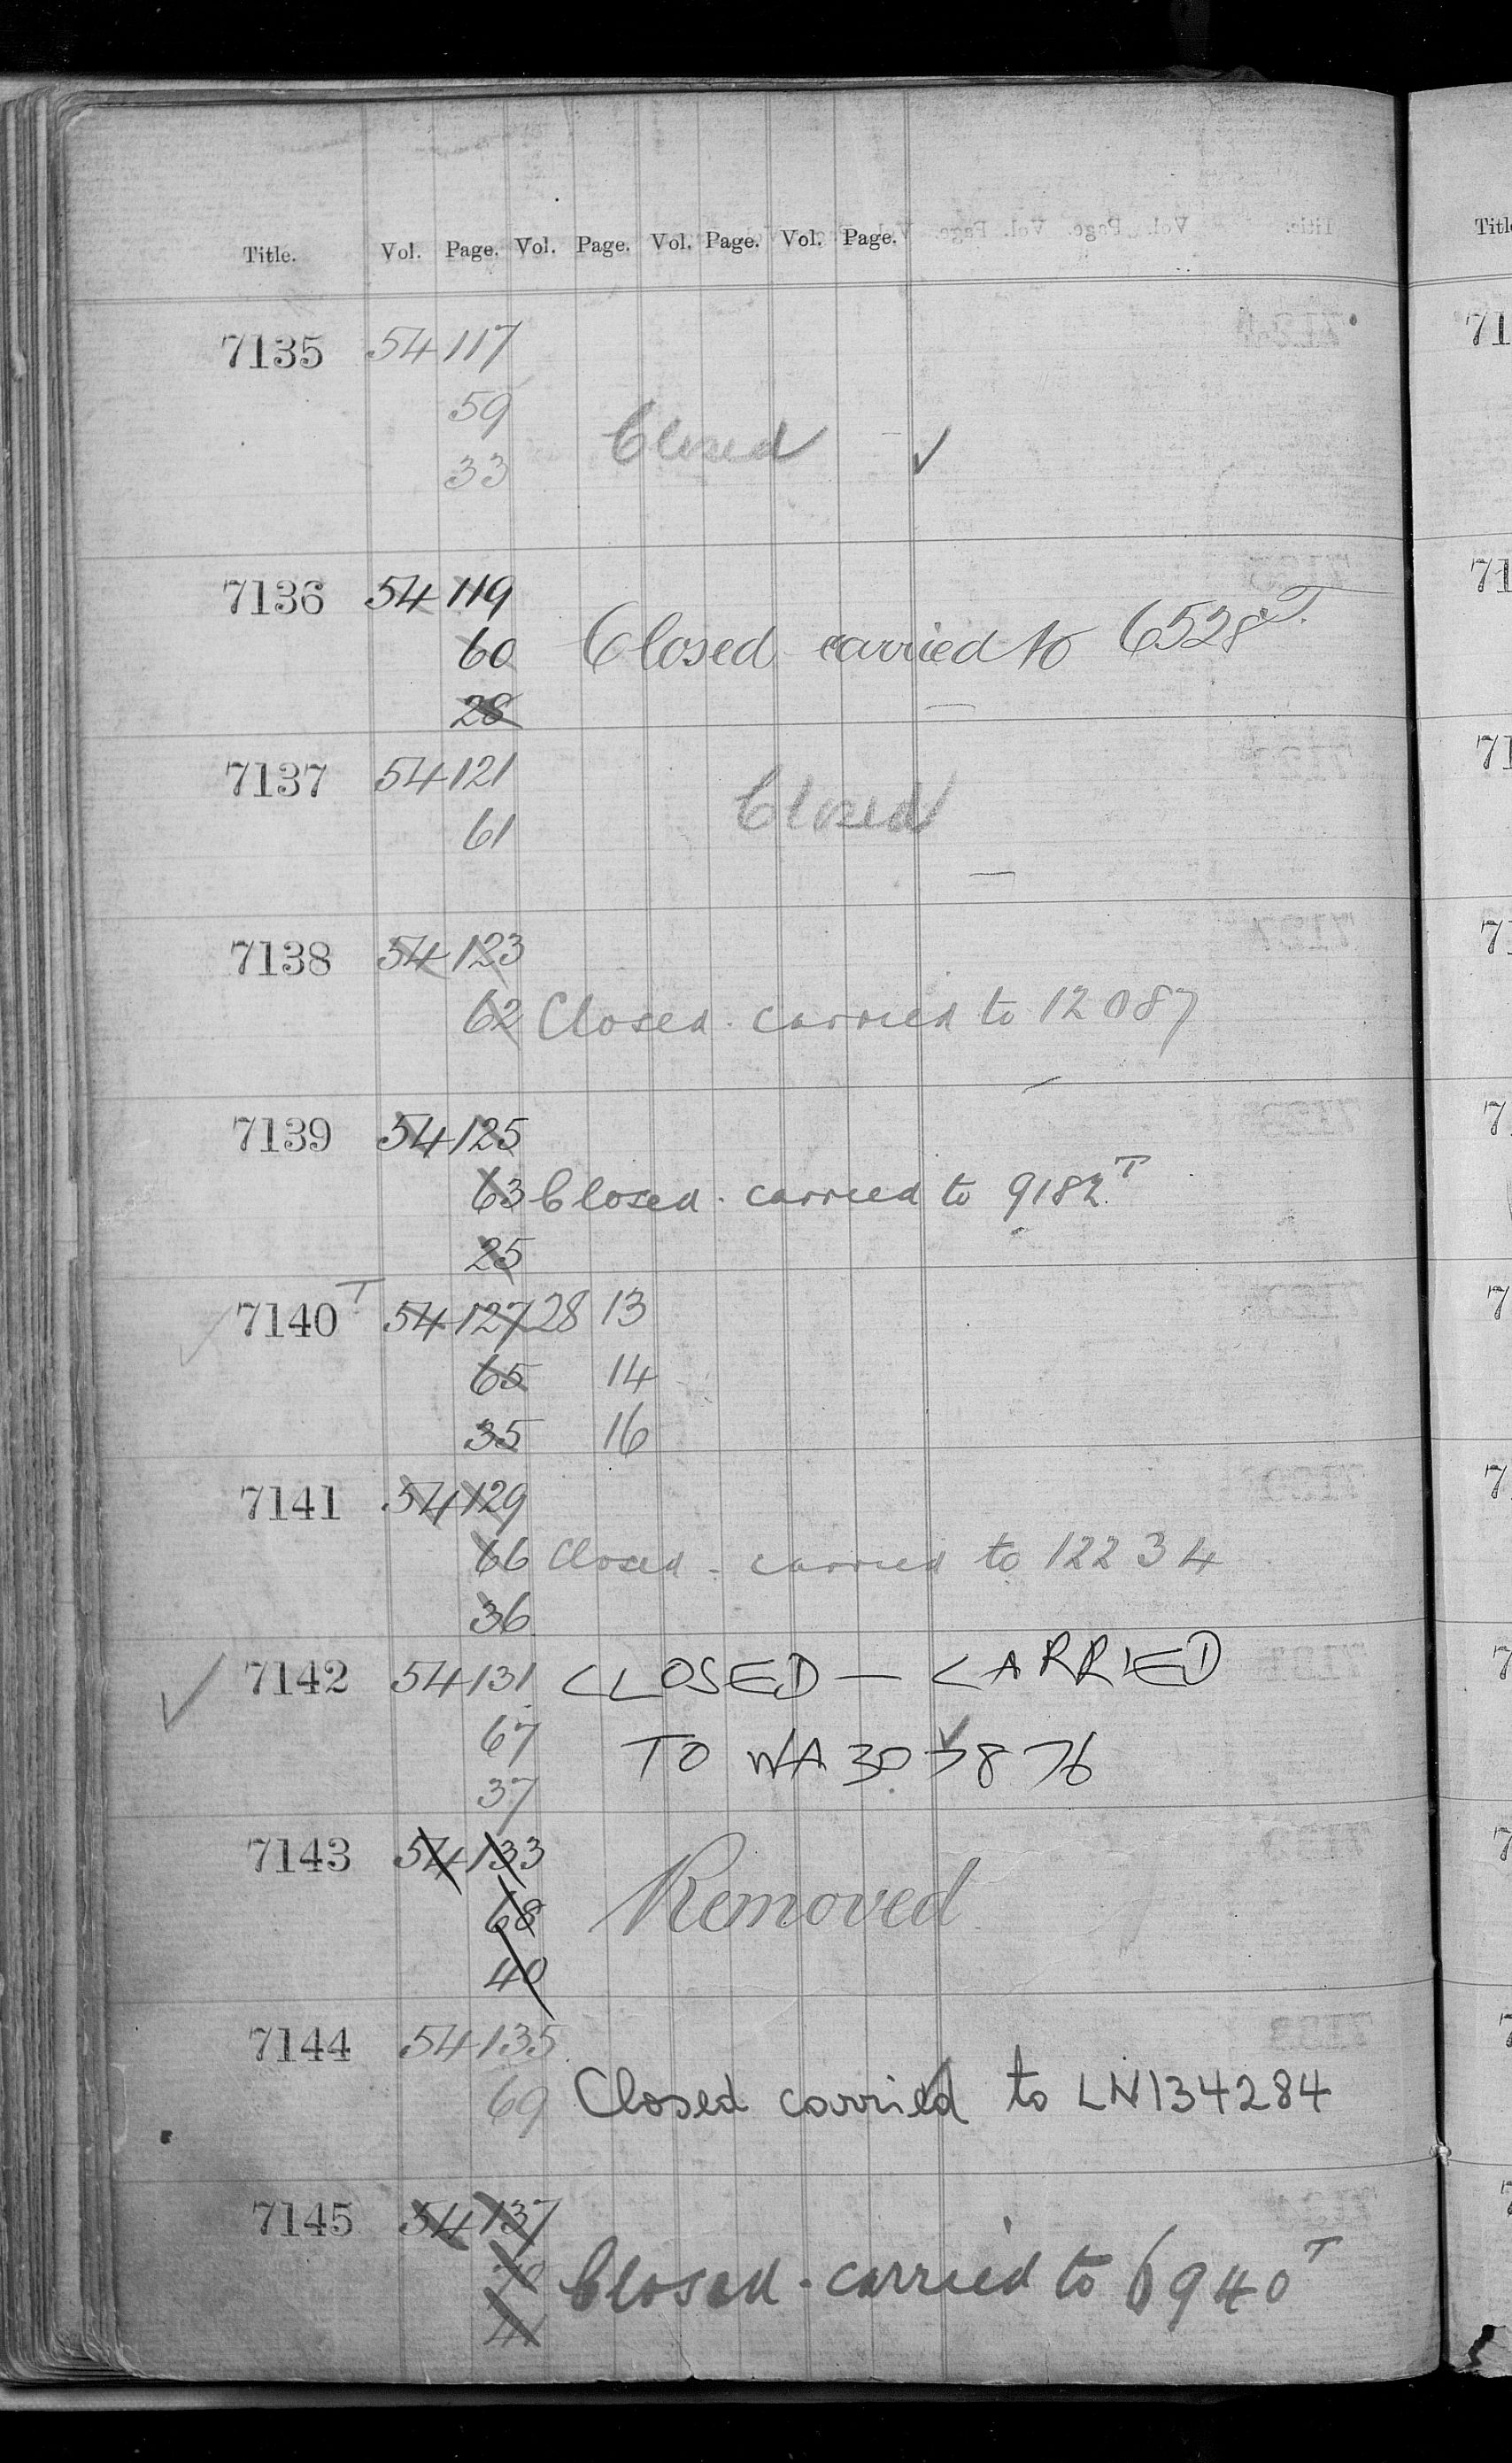 Title. Vol. Page. Vol. Page. Vol. Page. Vol. Page.
Titl
7135 54 117
59
Closed ✓
33
7136 54 119
60 Closed carried to 6528 T.
28
7137 54 121
Closed
61
7138 54 123
62 Closed. carried to 12087
7139 54 125
63 Closed. carried to 9182 T
25
7140 T 54 127 28 13
65 14
35 16
7141 54 129
66 Closed. carried to 12234
36
✓ 7142 54 131 CLOSED — CARRIED
67 TO WA 307876
37
7143 54 133
68 Removed
40
7144 54 135
69 Closed carried to LN134284
7145 54 137
70 Closed. carried to 6940 T